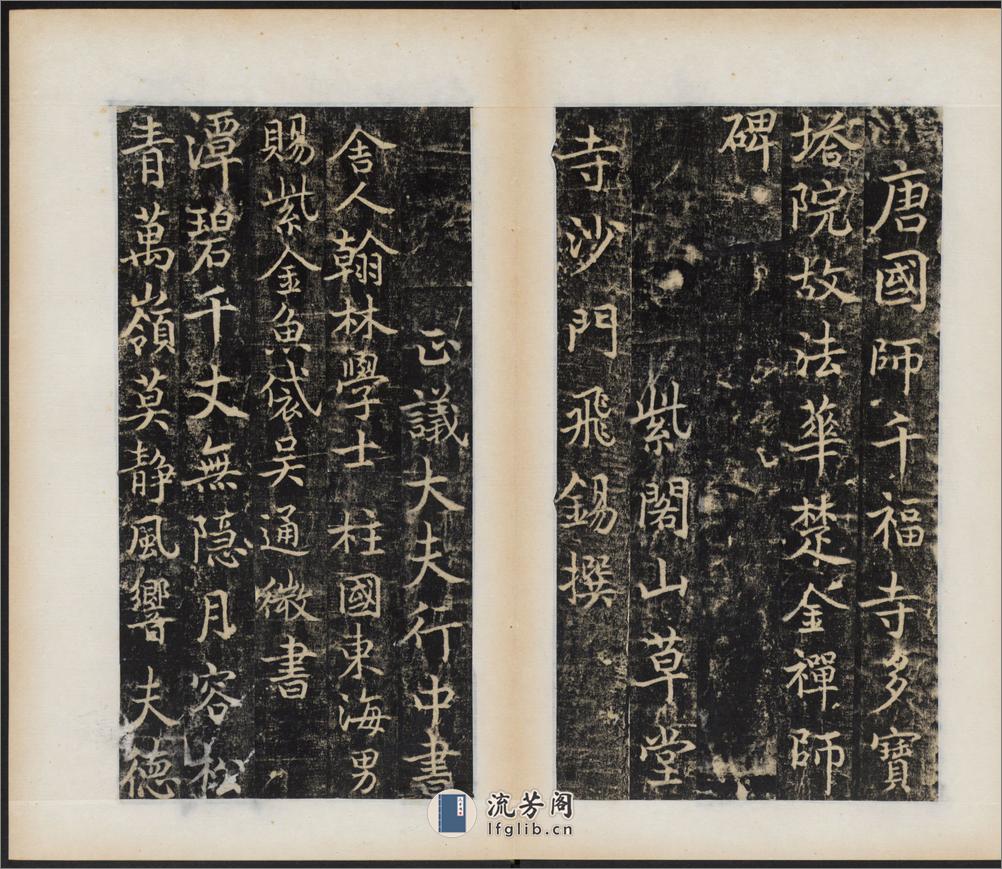 唐國師千福寺多寶
塔院故法華楚金禪師
碑
紫閣山草堂
寺沙門飛錫撰
正議大夫行中書
舍人翰林學士柱國東海男
賜紫金魚袋吳通微書
潭碧千丈無隱月容松
青萬嶺莫靜風響夫德
流芳阁
lfglib.cn